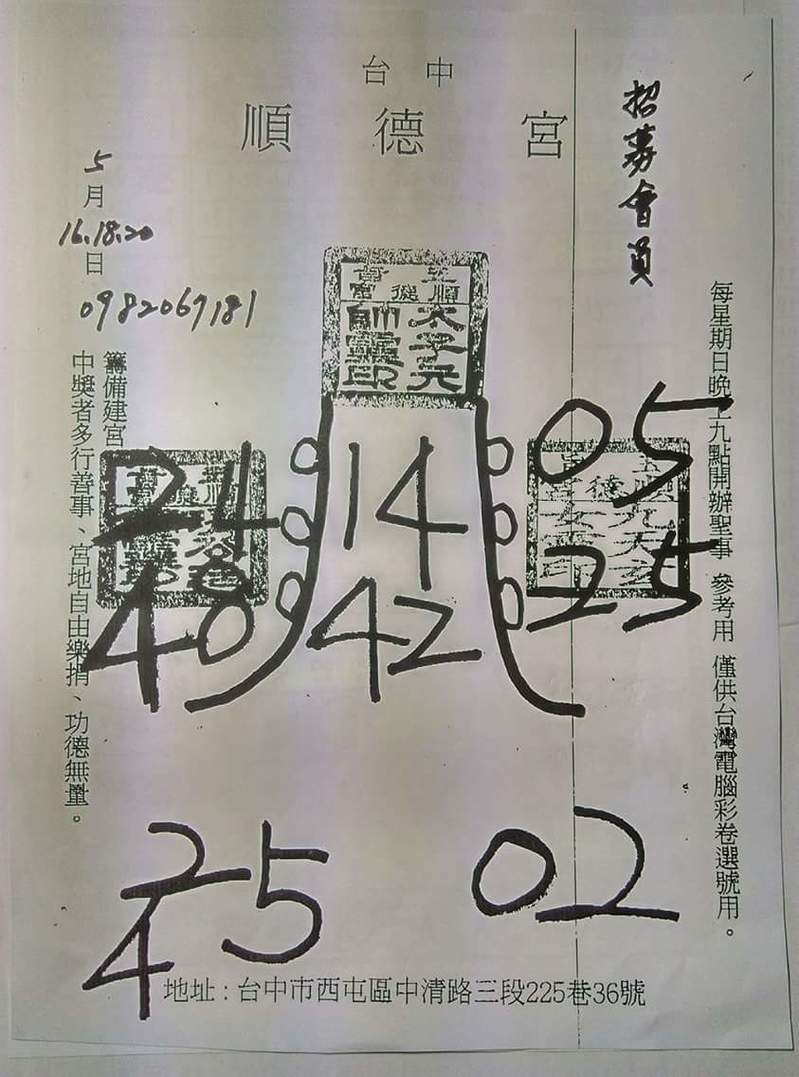 台中
順德宮
招募會員
每星期日晚上九點開辦聖事 參考用 僅供台灣電腦彩卷選號用。
5
月
16.18.20
日
0982067181
籌備建宮
中獎者多行善事、宮地自由樂捐、功德無量。
太子元
帥靈印
05
14
25
40
42
25
4
02
地址：台中市西屯區中清路三段225巷36號